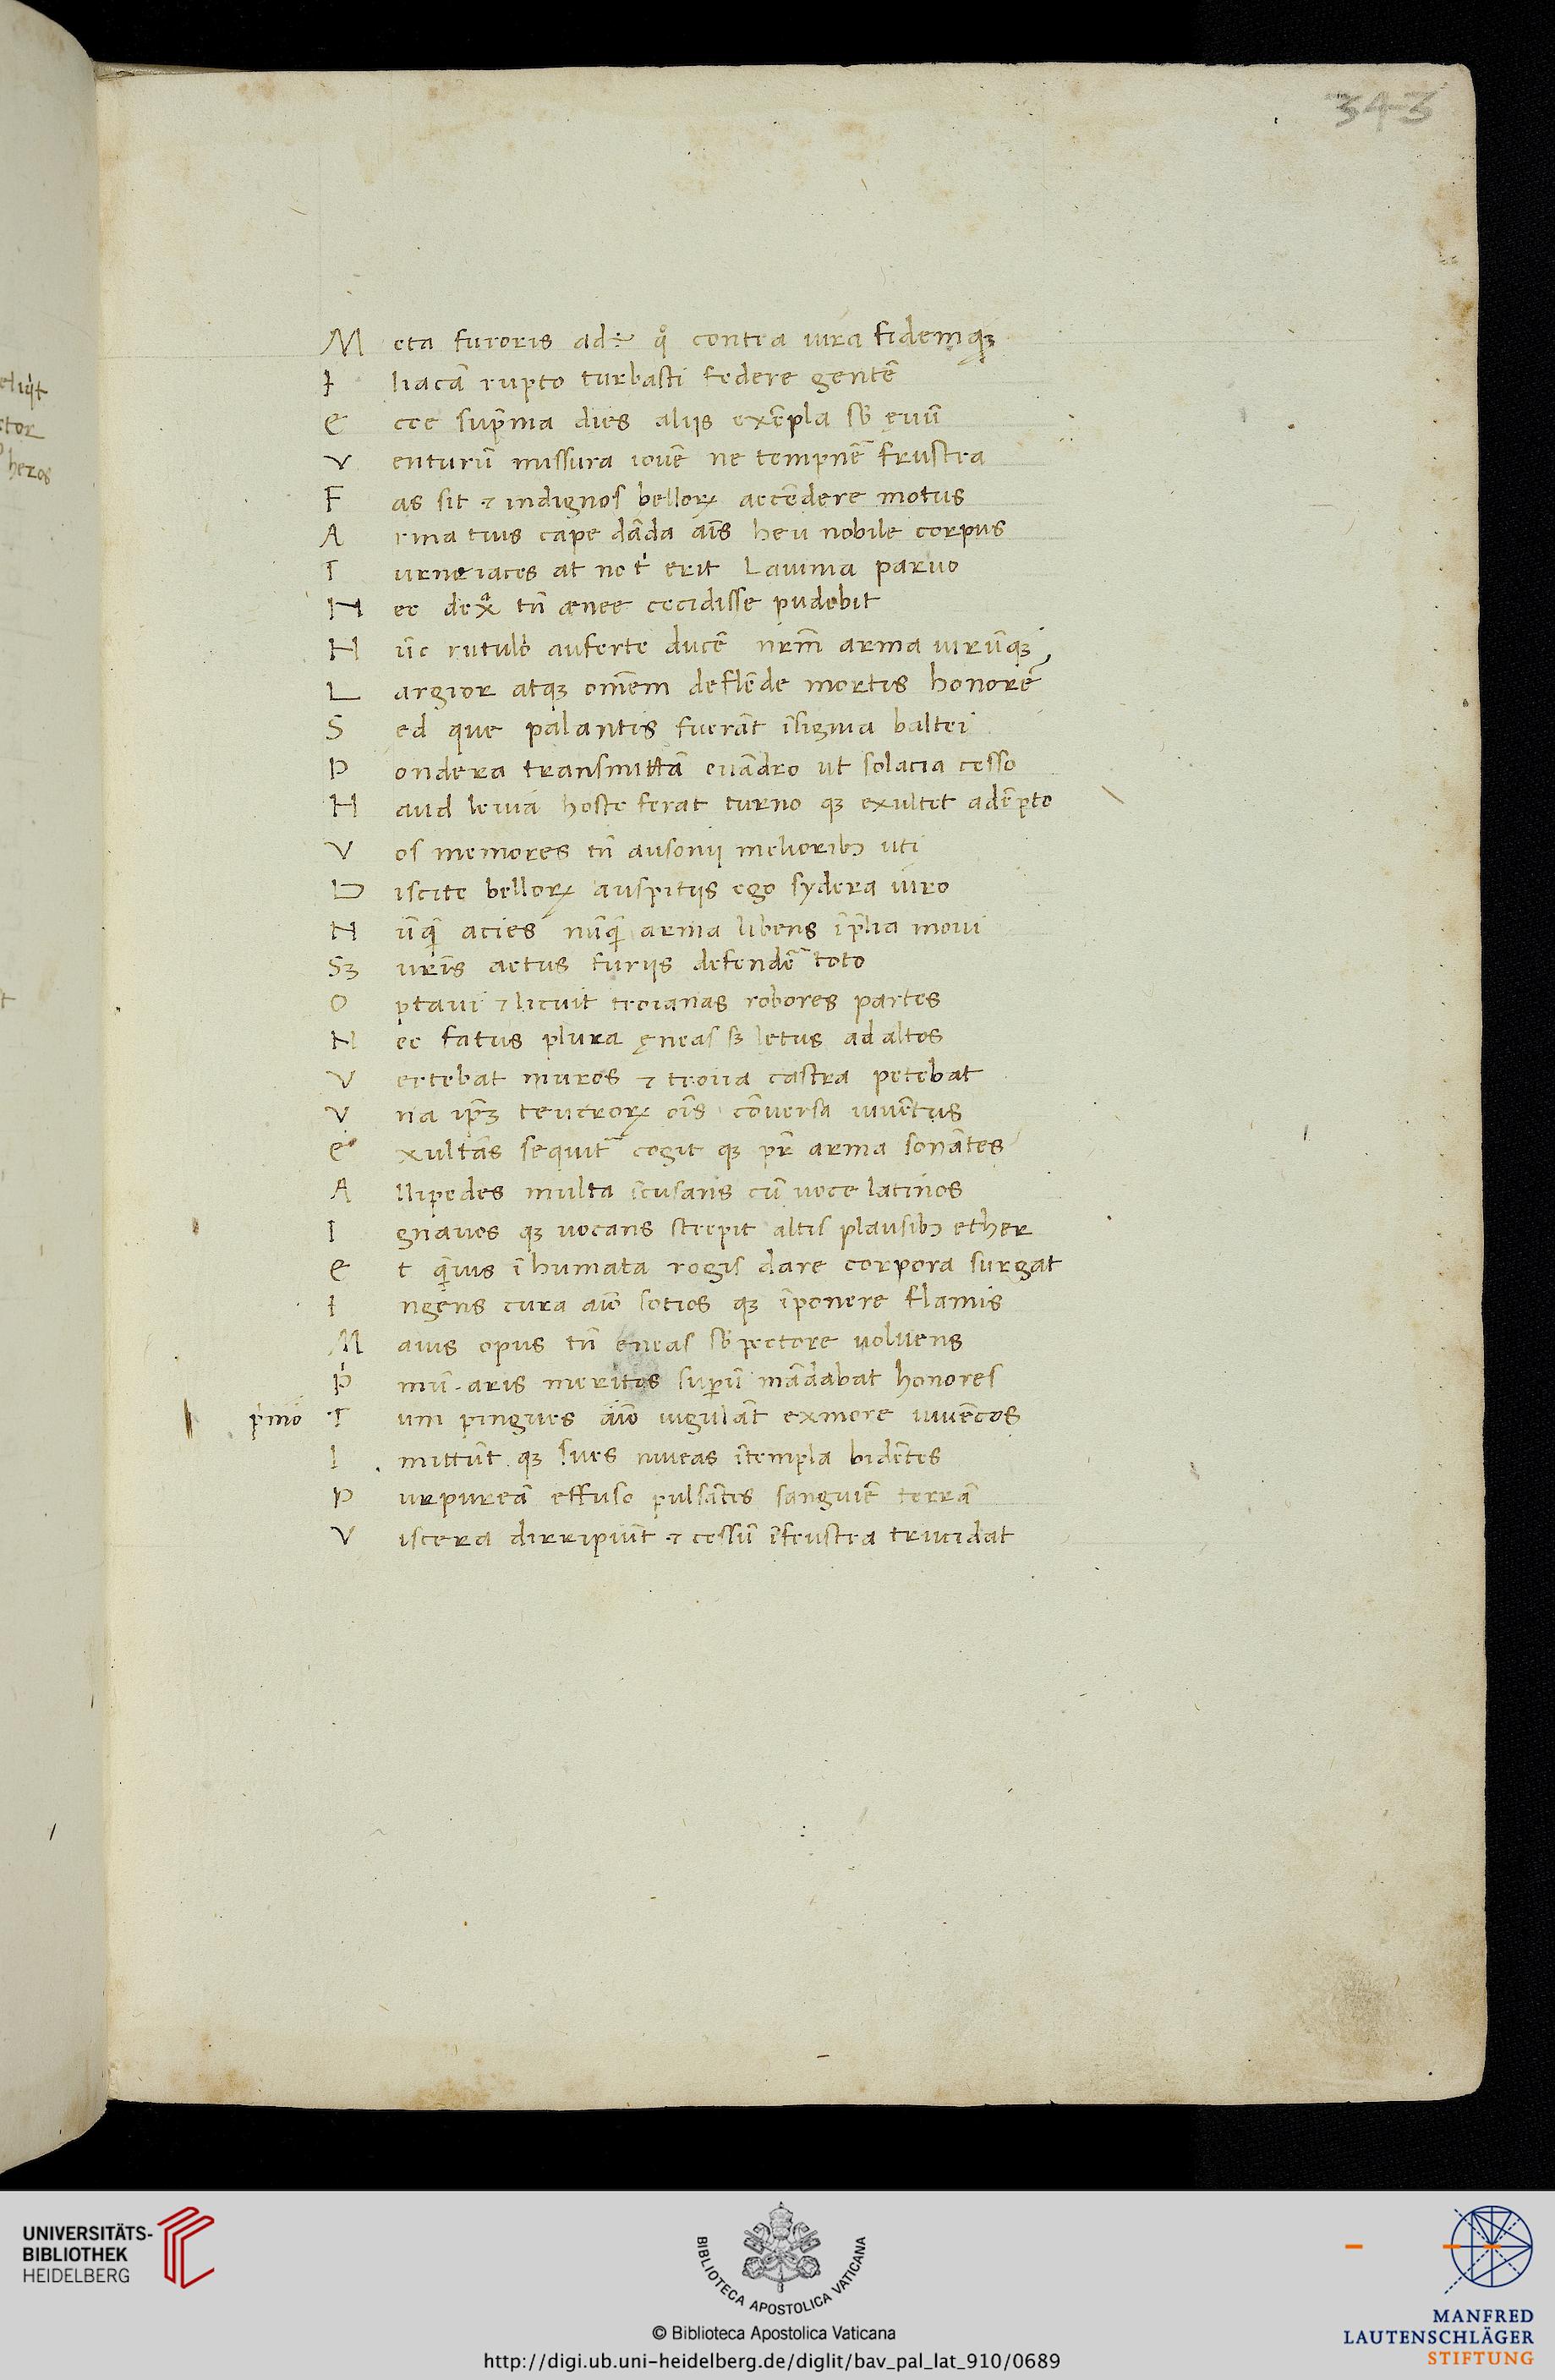 343
Meta furoris ad÷ qͦ contra iura fidemqꝫ
Iliacā rupto turbasti federe gentē
Ecce sup̄ma dies aliis exēpla sƀ ęuū
Venturū missura iouē ne tempnē frustra
Fas sit ⁊ indignos belloꝝ accēdere motus
Arma tuis cape dāda aīs heu nobile corpus
Turne iaces at nō t̄ erit Lauinia paruo
Nec dexᵃ tn̄ ænee cecidisse pudebit
Nūc rutuli auferte ducē nrm̄ arma uirūqꝫ
Largior atqꝫ om̄em deflēde mortis honorē
Sed que palantis fuerāt īsignia baltei
Pondera transmittā euādro ut solacia cesso
Haud leuia hoste ferat turno qꝫ exultet adēpto
Vos memores tn̄ ausonii melioribꝫ uti
Discite belloꝝ auspitiis ego sydera iuro
Nūqͥ acies nūqͥ arma libens īp̄lia moui
Sꝫ uris̄ actus furiis defendē toto
Optaui ⁊ licuit troianas robores partes
Nec fatus plura ęneas sꝫ lętus ad altos
Vertebat muros ⁊ troiia castra petebat
Vna ip̄ꝫ teucroꝝ oīs cōuersa iuuētus
Exultās sequit̄ cogit qꝫ pr̄ arma sonātes
Allipedes multa īcusans cū uoce latinos
Ignauos qꝫ uocans strepit altis plausibꝫ ether
Et qͣuis īhumata rogis dare corpora surgat
Ingens cura aīo sotios qꝫ īponere flamis
Maius opus tn̄ eneas sƀ pectore uoluens
Pͥmū aris meritos superū mādabat honores
pͥmo Tum pingues aīo iugulāt exmore iuuēcos
Imittūt qꝫ sues niueas ītempla bidētes
Purpureā effuso pulsātes sanguīē terrā
Viscera dirripiūt ⁊ cessū īfrustra trucidat
UNIVERSITÄTS-
BIBLIOTHEK
HEIDELBERG
BIBLIOTECA APOSTOLICA VATICANA
© Biblioteca Apostolica Vaticana
http://digi.ub.uni-heidelberg.de/diglit/bav_pal_lat_910/0689
MANFRED
LAUTENSCHLÄGER
STIFTUNG